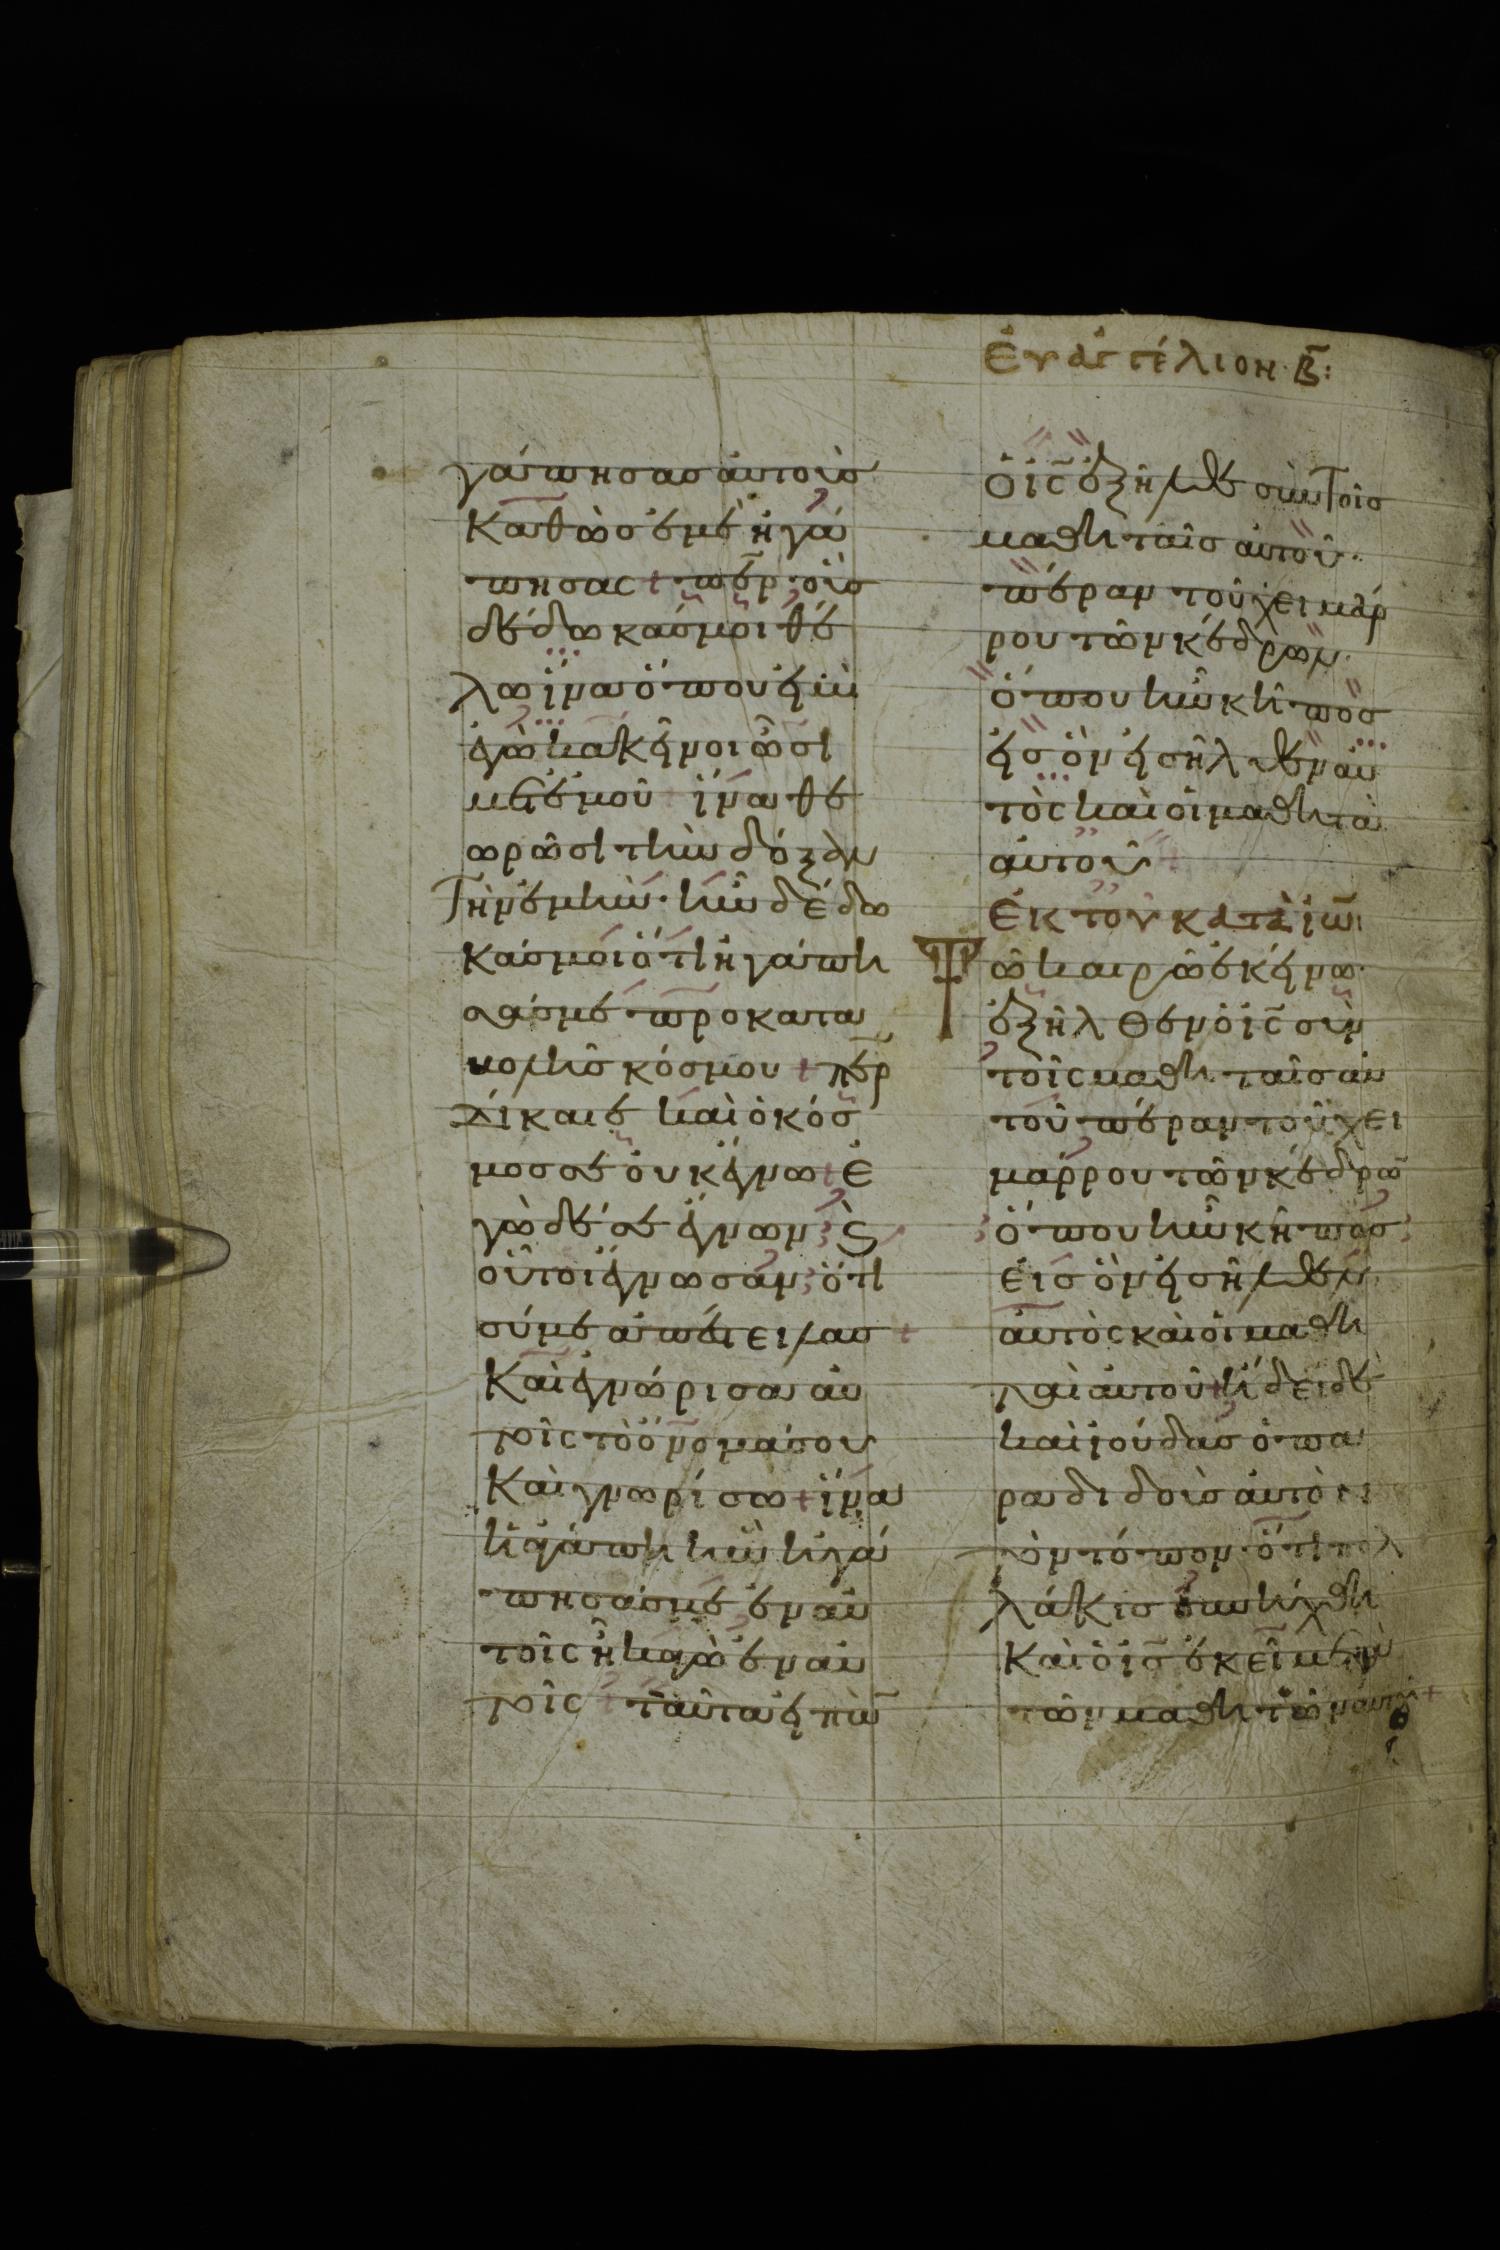 γάπησας αὐτοὺς
Καθὼς ἐμὲ ἠγά
πησας + περ οὓς
δέδωκάς μοι θέ
λω ἵνα ὅπου εἰμὶ
ἐγὼ κακεῖνοι ὦσι
μετ' ἐμοῦ ἵνα θε
ωρῶσι τὴν δόξαν
τὴν ἐμὴν. ἣν δέδω
κάς μοι ὅτι ἠγάπη
σάς με προ κατα
βολῆς κόσμου + περ
δίκαιε καὶ ὁ κόσ
μος σε οὐκ ἔγνω + ἐ
γὼ δέ σε ἔγνων, Ϛ
οὗτοι ἔγνωσαν, ὅτι
σύ με ἀπέστειλας +
Καὶ ἐγνώρισα αὐ
τοῖς τὸ ὄνομά σου
Καὶ γνωρίσω + ἵνα
ἡ ἀγάπη ἣν ἠγά
πησάς με ἐν αὐ
τοῖς ἦ κἀγὼ ἐν αὐ
τοῖς + ταῦτα εἰπὼ
Ευαγγέλιον Β:
Ὁ ις ἐξῆλθε σὺν τοῖς
μαθηταῖς αὐτοῦ.
πέραν τοῦ χειμάρ
ρου τῶν κέδρων.
ὅπου ἦν κῆπος
εἰς ὃν εἰσῆλθεν αὐ
τὸς καὶ οἱ μαθηταὶ
αὐτοῦ +
Ἐκ τοῦ κατὰ ἰω:
Τῶ καιρῶ ἐκείνω.
ἐξῆλθεν ὁ ις σὺν
τοῖς μαθηταῖς αὐ
τοῦ πέραν τοῦ χει
μάρρου τῶν κέδρω
ὅπου ἦν κῆπος,
εἰς ὃν εἰσῆλθεν
αὐτὸς καὶ οἱ μαθη
ταὶ αὐτοῦ + ἤδει δὲ
καὶ ἰούδας ὁ πα
ραδιδοὺς αὐτὸν
τὸν τόπον. ὅτι πολ
λάκις συνήχθη
Καὶ ὁ ις ἐκεῖ μετὰ
τῶν μαθητῶν αὐτοῦ +